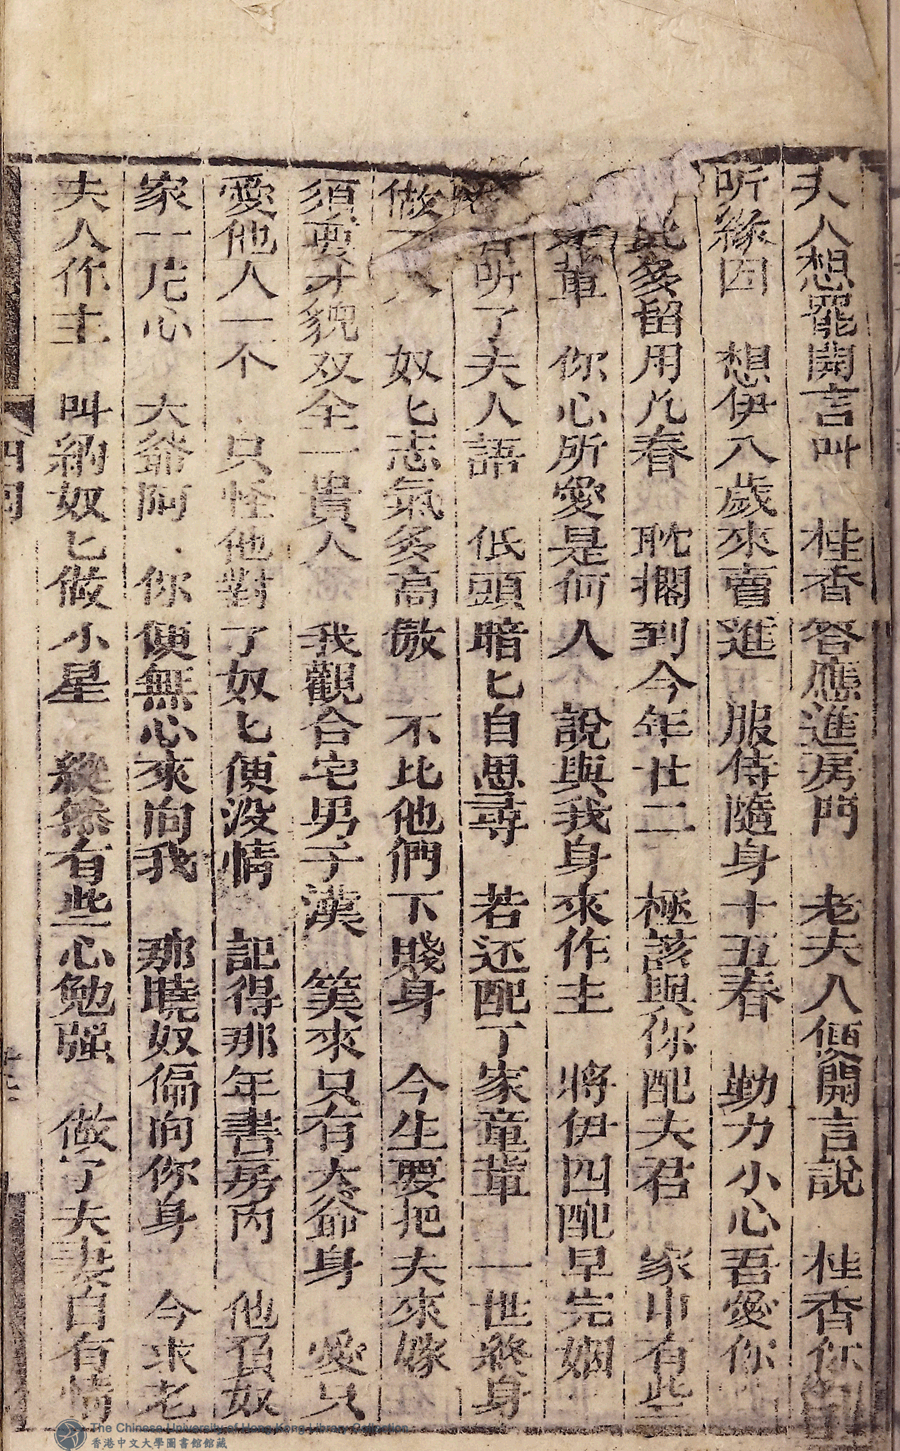 夫人想罷開言叫 桂香答應進房門 老夫人便開言說 桂香你
听緣因 想伊八歲來賣進 服侍隨身十五春 勤力小心吾愛你
多留用几春 耽擱到今年廿二 極該與你配夫君 家中有些
輩 你心所愛是何人 說與我身來作主 將伊四配早完姻
听了夫人語 低頭暗匕自思尋 若还配丁家童輩 一世終身
做 奴匕志氣多高傲 不比他們下賤身 今生要把夫來嫁
須要才貌双全一貴人 我觀合宅男子漢 筭來只有大爺身 愛只
愛他人一不 只怪他對了奴匕便没情 記得那年書房内 他負奴
家一片心 大爺阿 你便無心來向我 那曉奴偏向你身 今求老
夫人作主 叫納奴匕做小星 縱然有些心勉强 做了夫妻自有情
The Chinese University of Hong Kong Library Collection
香港中文大學圖書館館藏